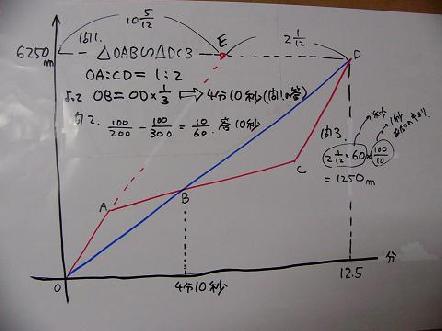 10 5/12
2 1/12
6250
m
問1.
△OAB∽△DCB
OA:CD=1:2
より OB=OD×1/3 ⇒ 4分10秒(問1の答)
問2. 100/200 - 100/300 = 10/60. 答10秒
問3.
2 1/12 × 60 × 100/10
= 1250m
E
D
A
B
C
O
4分10秒
12.5
分